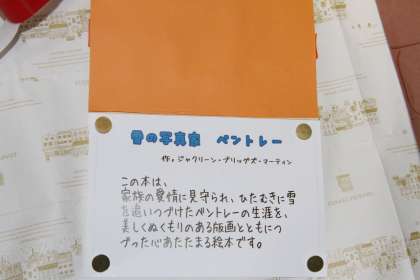 雪の写真家 ベントレー
作:ジャクリーン・ブリッグズ・マーティン
この本は、
家族の愛情に見守られ、ひたむきに雪
を追いつづけたベントレーの生涯を、
美しくぬくもりのある版画とともにつ
づった心あたたまる絵本です。